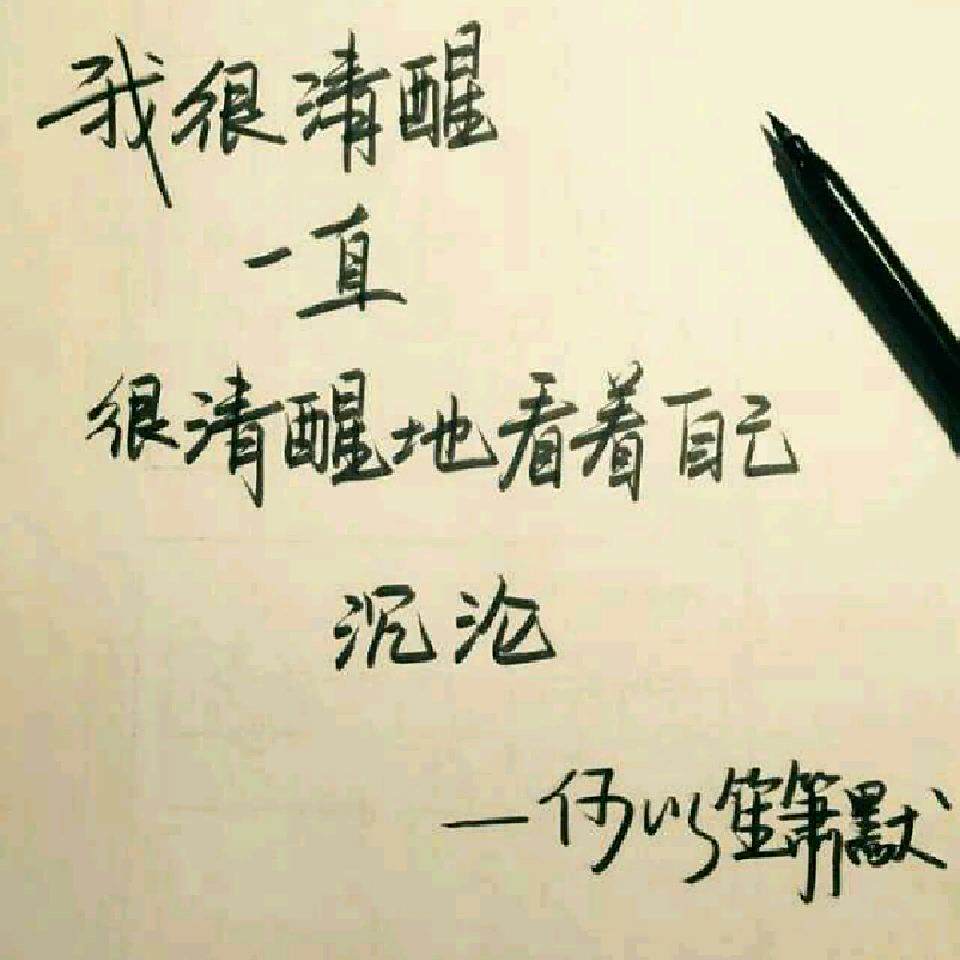 我很清醒
一直
很清醒地看着自己
沉沦
—何以笙箫默